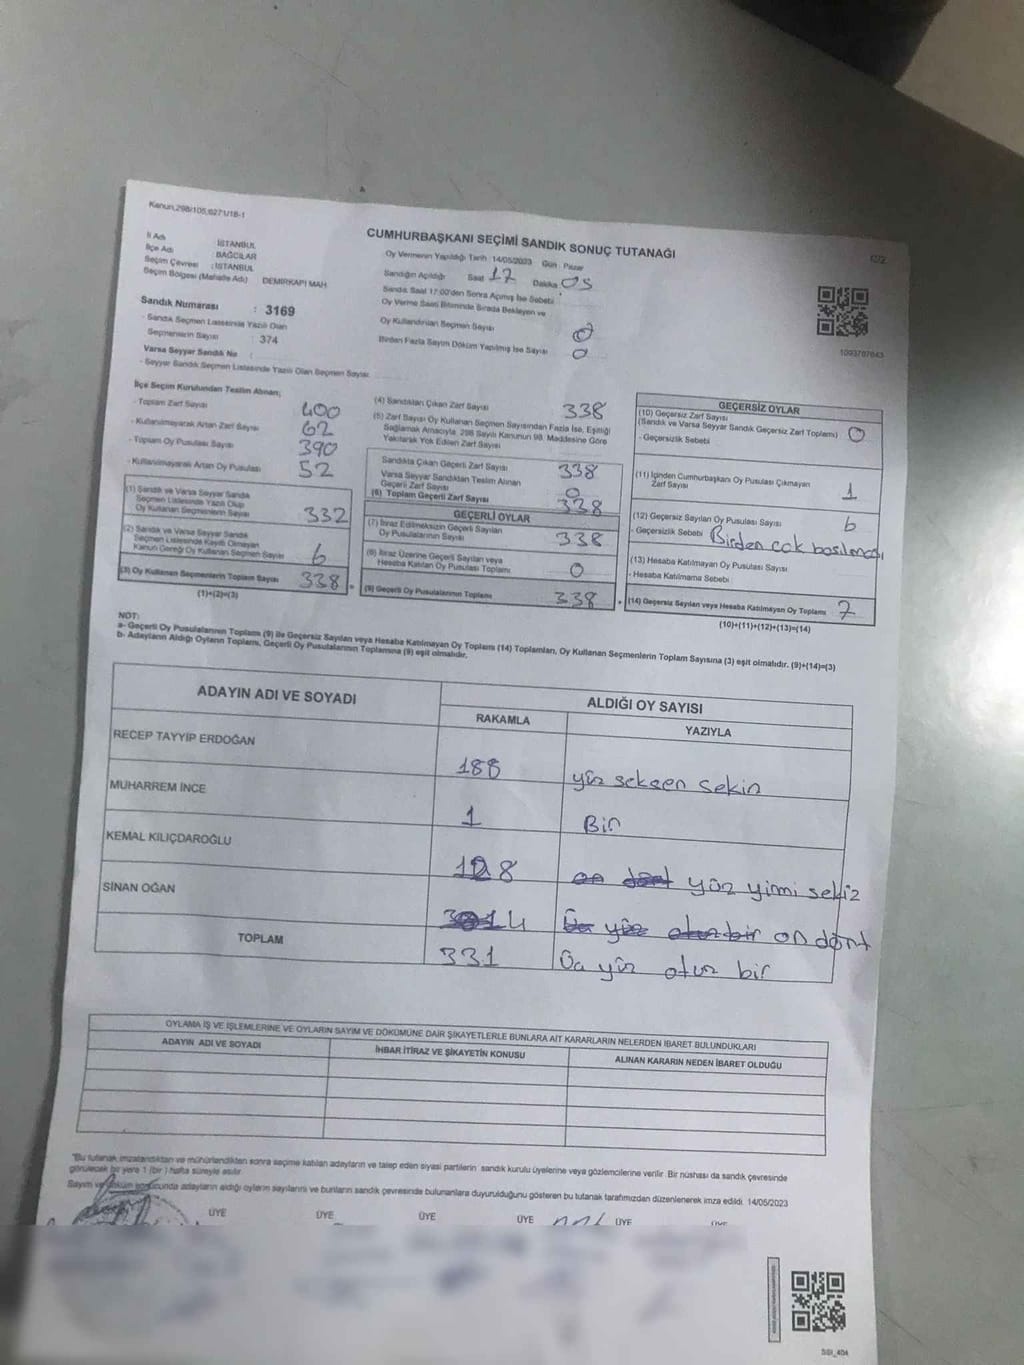 Kanun,298/105,627 U18-1
CUMHURBAŞKANI SEÇİMİ SANDIK SONUÇ TUTANAĞI
İl Adı İSTANBUL
İlçe Adı BAĞCILAR
Seçim Çevresi : İSTANBUL
Seçim Bölgesi (Mahalle Adı) DEMİRKAPI MAH
Sandık Numarası : 3169
- Sandık Seçmen Listesinde Yazılı Olan
Seçmenlerin Sayısı : 374
Varsa Seyyar Sandık No :
- Seyyar Sandık Seçmen Listesinde Yazılı Olan Seçmen Sayısı
Oy Vermenin Yapıldığı Tarih 14/05/2023 Gün : Pazar
Sandığın Açıldığı Saat 17 Dakika 05
Sandık Saat 17:00'den Sonra Açmış İse Sebebi
Oy Verme Saati Bitiminde Sırada Bekleyen ve
Oy Kullandırılan Seçmen Sayısı 0
Birden Fazla Sayım Döküm Yapılmış İse Sayısı 0
1093707643
İlçe Seçim Kurulundan Teslim Alınan;
- Toplam Zarf Sayısı 400
- Kullanılmayarak Artan Zarf Sayısı 62
- Toplam Oy Pusulası Sayısı 390
- Kullanılmayarak Artan Oy Pusulası 52
(1) Sandık ve Varsa Seyyar Sandık
Seçmen Listesinde Yazılı Olup
Oy Kullanan Seçmenlerin Sayısı 332
(2) Sandık ve Varsa Seyyar Sandık
Seçmen Listesinde Kayıtlı Olmayan
Kanun Gereği Oy Kullanan Seçmen Sayısı 6
(3) Oy Kullanan Seçmenlerin Toplam Sayısı 338
(1)+(2)=(3)
(4) Sandıktan Çıkan Zarf Sayısı 338
(5) Zarf Sayısı Oy Kullanan Seçmen Sayısından Fazla İse, Eşitliği
Sağlamak Amacıyla, 298 Sayılı Kanunun 98. Maddesine Göre
Yakılarak Yok Edilen Zarf Sayısı
Sandıkta Çıkan Geçerli Zarf Sayısı 338
Varsa Seyyar Sandıktan Teslim Alınan
Geçerli Zarf Sayısı 0
(6) Toplam Geçerli Zarf Sayısı 338
GEÇERLİ OYLAR
(7) İtiraz Edilmeksizin Geçerli Sayılan
Oy Pusulalarının Sayısı 338
(8) İtiraz Üzerine Geçerli Sayılan veya
Hesaba Katılan Oy Pusulası Toplamı 0
(9) Geçerli Oy Pusulalarının Toplamı 338
GEÇERSİZ OYLAR
(10) Geçersiz Zarf Sayısı
(Sandık ve Varsa Seyyar Sandık Geçersiz Zarf Toplamı) 0
- Geçersizlik Sebebi
(11) İçinden Cumhurbaşkanı Oy Pusulası Çıkmayan
Zarf Sayısı 1
(12) Geçersiz Sayılan Oy Pusulası Sayısı 6
- Geçersizlik Sebebi Birden cok basılması
(13) Hesaba Katılmayan Oy Pusulası Sayısı
- Hesaba Katılmama Sebebi
(14) Geçersiz Sayılan veya Hesaba Katılmayan Oy Toplamı 7
(10)+(11)+(12)+(13)=(14)
NOT:
a- Geçerli Oy Pusulalarının Toplamı (9) ile Geçersiz Sayılan veya Hesaba Katılmayan Oy Toplamı (14) Toplamları, Oy Kullanan Seçmenlerin Toplam Sayısına (3) eşit olmalıdır. (9)+(14)=(3)
b- Adayların Aldığı Oyların Toplamı, Geçerli Oy Pusulalarının Toplamına (9) eşit olmalıdır.
ADAYIN ADI VE SOYADI ALDIĞI OY SAYISI
RAKAMLA YAZIYLA
RECEP TAYYİP ERDOĞAN 188 yüz seksen sekin
MUHARREM İNCE 1 Bir
KEMAL KILIÇDAROĞLU 128 on dört yüz yirmi sekiz
SİNAN OĞAN 14 Üç yüz otuz bir on dört
TOPLAM 331 Üç yüz otuz bir
OYLAMA İŞ VE İŞLEMLERİNE VE OYLARIN SAYIM VE DÖKÜMÜNE DAİR ŞİKAYETLERLE BUNLARA AİT KARARLARIN NELERDEN İBARET BULUNDUKLARI
ADAYIN ADI VE SOYADI İHBAR İTİRAZ VE ŞİKAYETİN KONUSU ALINAN KARARIN NEDEN İBARET OLDUĞU
"Bu tutanak imzalandıktan ve mühürlendikten sonra seçime katılan adayların ve talep eden siyasi partilerin sandık kurulu üyelerine veya gözlemcilerine verilir. Bir nüshası da sandık çevresinde
görülecek bir yere 1 (bir) hafta süreyle asılır.
Sayım ve döküm sonucunda adayların aldığı oyların sayılarını ve bunların sandık çevresinde bulunanlara duyurulduğunu gösteren bu tutanak tarafımızdan düzenlenerek imza edildi. 14/05/2023
ÜYE ÜYE ÜYE ÜYE ÜYE ÜYE
SSI_404